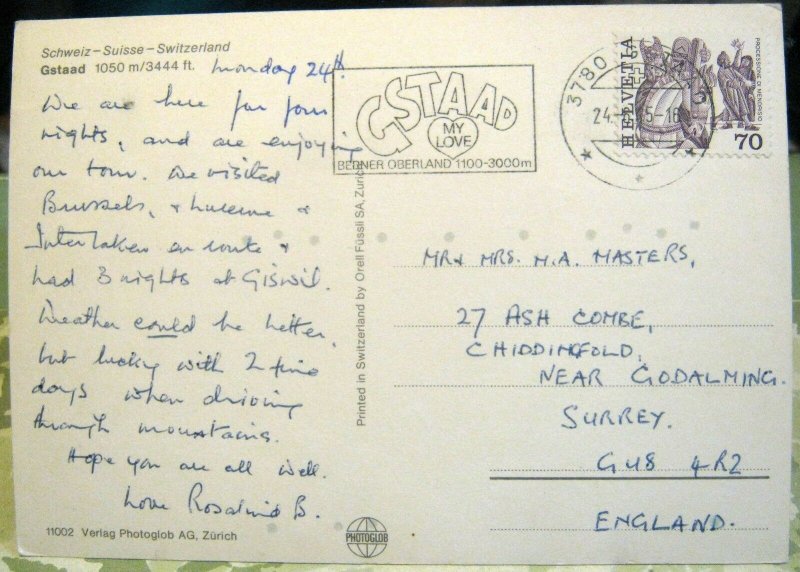 Schweiz–Suisse–Switzerland
Gstaad 1050 m/3444 ft.
Monday 24th.
We are here for four
nights, and are enjoying
our tour. We visited
Brussels, & Lucerne &
Interlaken en route &
had 3 nights at Giswil.
Weather could be better,
but lucky with 2 fine
days when driving
through mountains.
Hope you are all well.
Love Rosalind B.
11002 Verlag Photoglob AG, Zürich
Printed in Switzerland by Orell Füssli SA, Zurich
PHOTOGLOB
GSTAAD
MY
LOVE
BERNER OBERLAND 1100-3000m
3780
24.
5-16
HELVETIA
PROCESSIONE DI MENDRISIO
70
MR & MRS. M.A. MASTERS,
27 ASH COMBE,
CHIDDINGFOLD,
NEAR GODALMING.
SURREY.
GU8 4RZ
ENGLAND.